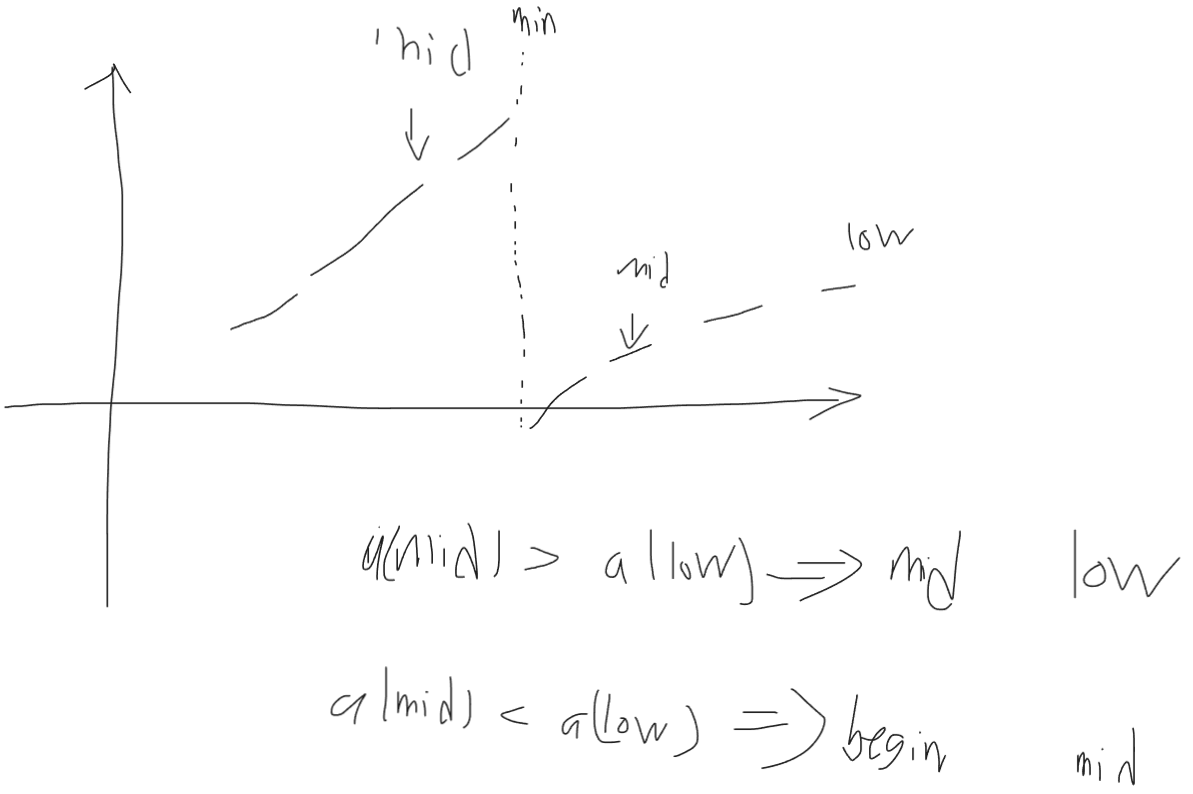 min
mid
low
mid
a(mid) > a(low) ⇒ mid low
a(mid) < a(low) ⇒ begin mid